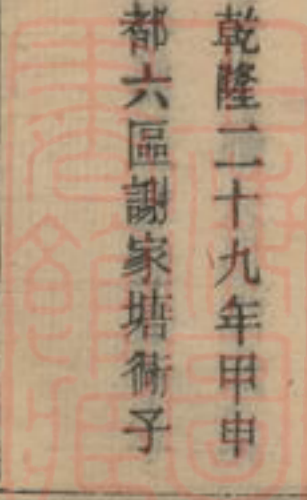 乾隆二十九年甲申
都六區謝家塘衖子